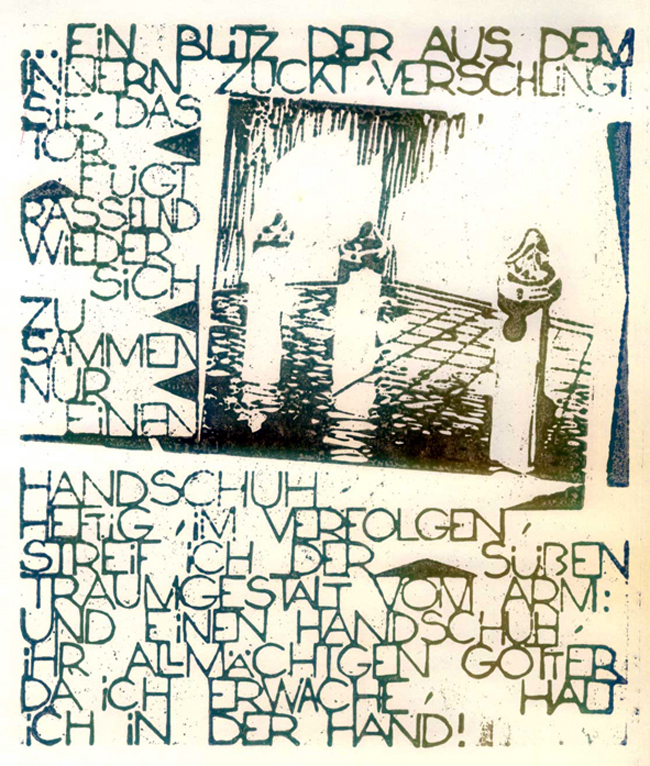 ...EIN BLITZ DER AUS DEM
INNERN ZUCKT, VERSCHLINGT
SIE, DAS
TOR
FÜGT
RASSELND
WIEDER
SICH
ZU
SAMMEN
NUR
EINEN
HANDSCHUH
HEFTIG, IM VERFOLGEN,
STREIF ICH DER SÜßEN
TRAUMGESTALT VOM ARM:
UND EINEN HANDSCHUH,
IHR ALLMÄCHTIGEN GÖTTER,
DA ICH ERWACHE, HALT
ICH IN DER HAND!